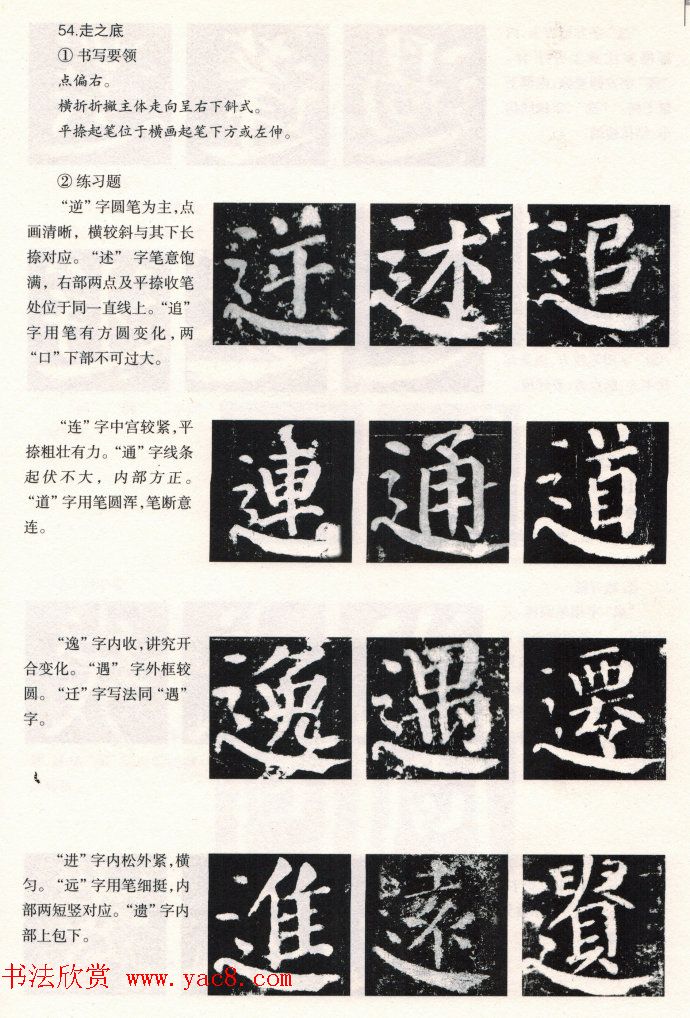 54.走之底
① 书写要领
点偏右。
横折折撇主体走向呈右下斜式。
平捺起笔位于横画起笔下方或左伸。
② 练习题
“逆”字圆笔为主,点
画清晰，横较斜与其下长
捺对应。“述”字笔意饱
满，右部两点及平捺收笔
处位于同一直线上。“追”
字用笔有方圆变化,两
“口”下部不可过大。
逆 述 追
“连”字中宫较紧,平
捺粗壮有力。“通”字线条
起伏不大，内部方正。
“道”字用笔圆浑,笔断意
连。
連 通 道
“逸”字内收,讲究开
合变化。“遇”字外框较
圆。“迁”字写法同“遇”
字。
逸 遇 遷
“进”字内松外紧,横
匀。“远”字用笔细挺,内
部两短竖对应。“遗”字内
部上包下。
進 遠 遺
书法欣赏 www.yac8.com